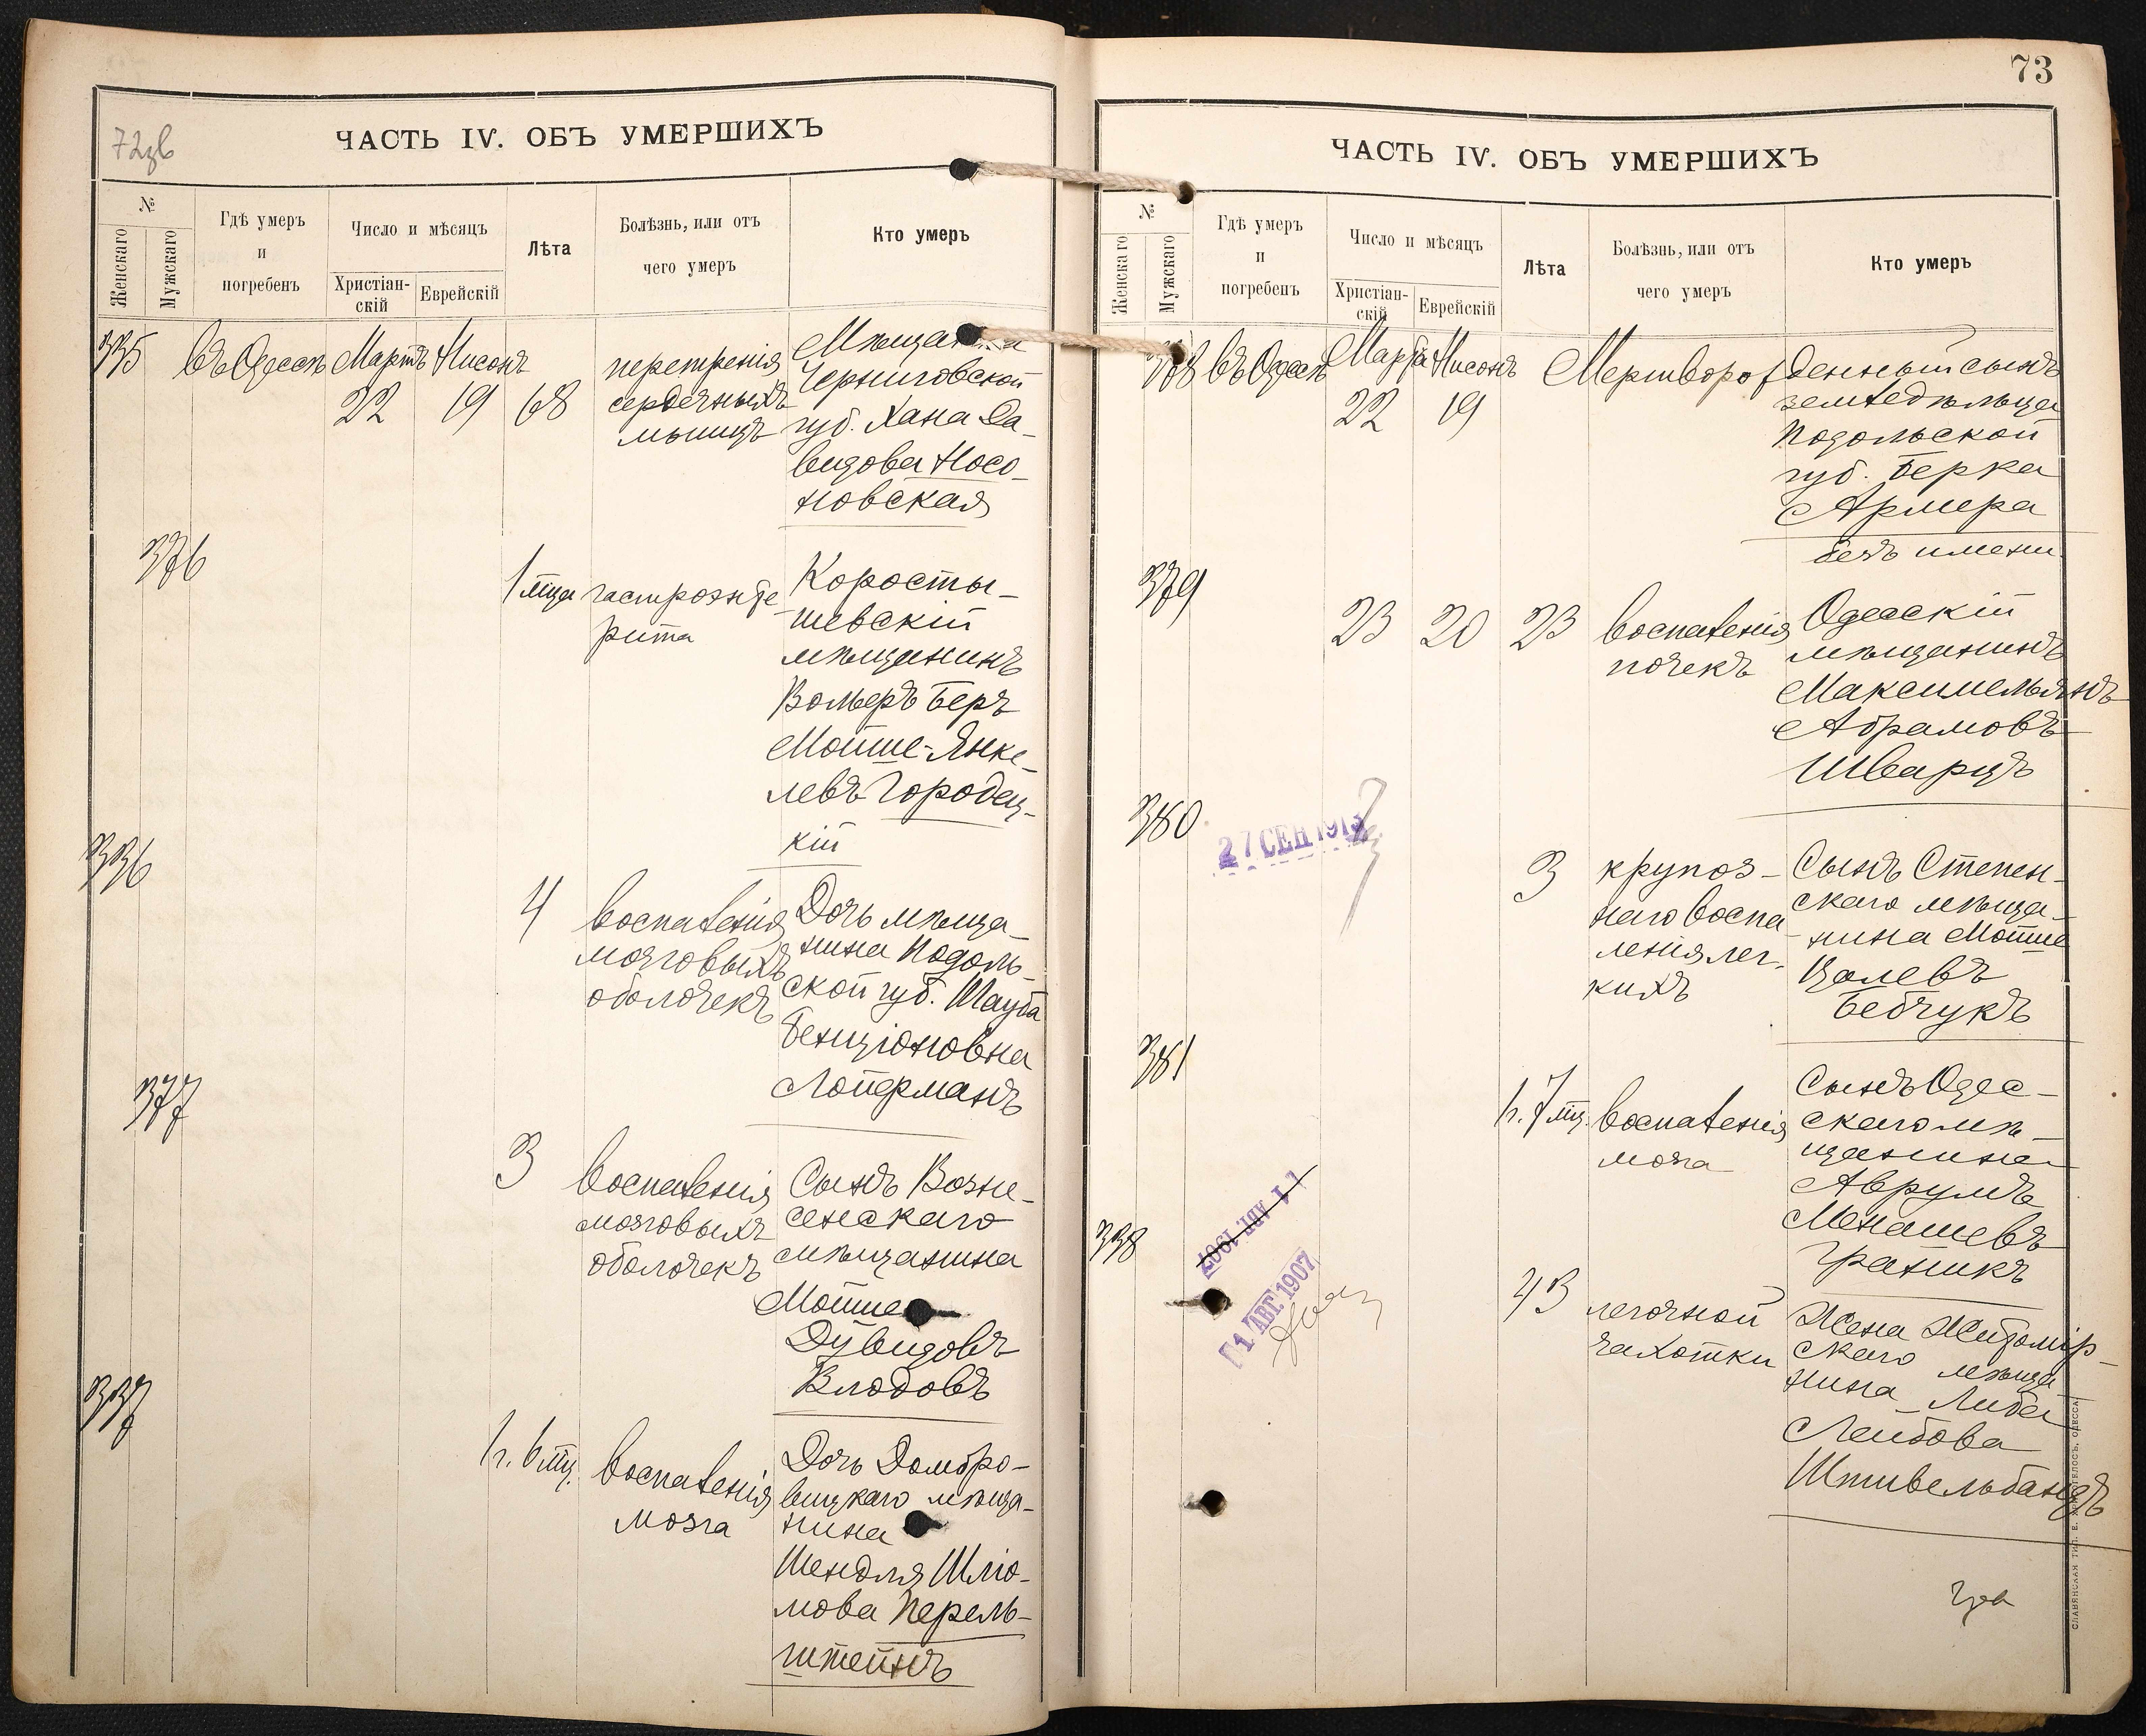 72зв
ЧАСТЬ IV. ОБЪ УМЕРШИХЪ
№
Женскаго
Мужскаго
Гдѣ умеръ
и
погребенъ
Число и мѣсяцъ
Христіан-
скій
Еврейскій
Лѣта
Болѣзнь, или отъ
чего умеръ
Кто умеръ
335 въ Одессѣ Мартъ Нисонъ
22 19 68
перерожденія
сердечныхъ
мышцъ
Мѣщанка
Черниговской
губ. Хана Да-
видова Носо-
новская
376
1 мца гастроэнте
рита
Коросты-
шевскій
мѣщанинъ
Вольеръ Беръ
Мойше-Янке-
левъ Городец-
кій
336
4
воспаленія
мозговыхъ
оболочекъ
Дочь мѣща-
нина Подоль-
ской губ.
Бенціоновна
Лойерманъ
377
3
воспаленія
мозговыхъ
оболочекъ
Сынъ Возне-
сенскаго
мѣщанина
Мойше
Дувидовъ
337
1 г. 6 мц.
воспаленія
мозга
Дочь Домбро-
вицкаго мѣща-
нина
Шендля Шлio-
мова Перель-
штейнъ
73
ЧАСТЬ IV. ОБЪ УМЕРШИХЪ
№
Женскаго
Мужскаго
Гдѣ умеръ
и
погребенъ
Число и мѣсяцъ
Христіан-
скій
Еврейскій
Лѣта
Болѣзнь, или отъ
чего умеръ
Кто умеръ
378 въ Одессѣ Марта Нисонъ
22 19
Мертворожденный сынъ
земледѣльца
Подольской
губ. Берка
Армера
безъ имени
379
23 20 23
воспаленія
почекъ
Одесскій
мѣщанинъ
Максимельянъ
Абрамовъ
Шварцъ
380
27 СЕН 1913
3
крупоз-
наго воспа-
ленія лег-
кихъ
Сынъ Степен-
скаго мѣща-
нина Мойше
Цалевъ
Бебчукъ
381
1 г. 7 мц.
воспаленія
мозга
Сынъ Одес-
скаго мѣ-
щанина
Аврумъ
Менашевъ
Граникъ
338
11 АВГ. 1907
11 АВГ. 1907
43
легочной
чахотки
Жена Житомір-
скаго мѣща-
нина Либа
Лейбова
Штивельбандъ
СЛАВЯНСКАЯ ТИП. Е. ХРИСОГЕЛОСЪ, ОДЕССА